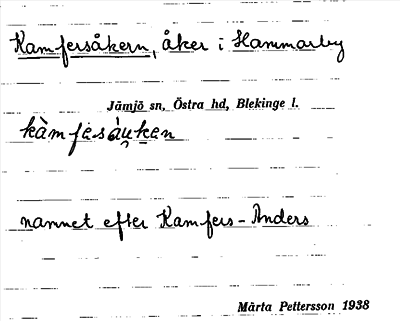 Kamfersåkern, åker i Hammarby
Jämjö sn, Östra hd, Blekinge l.
namnet efter Kamfers-Anders
Märta Pettersson 1938